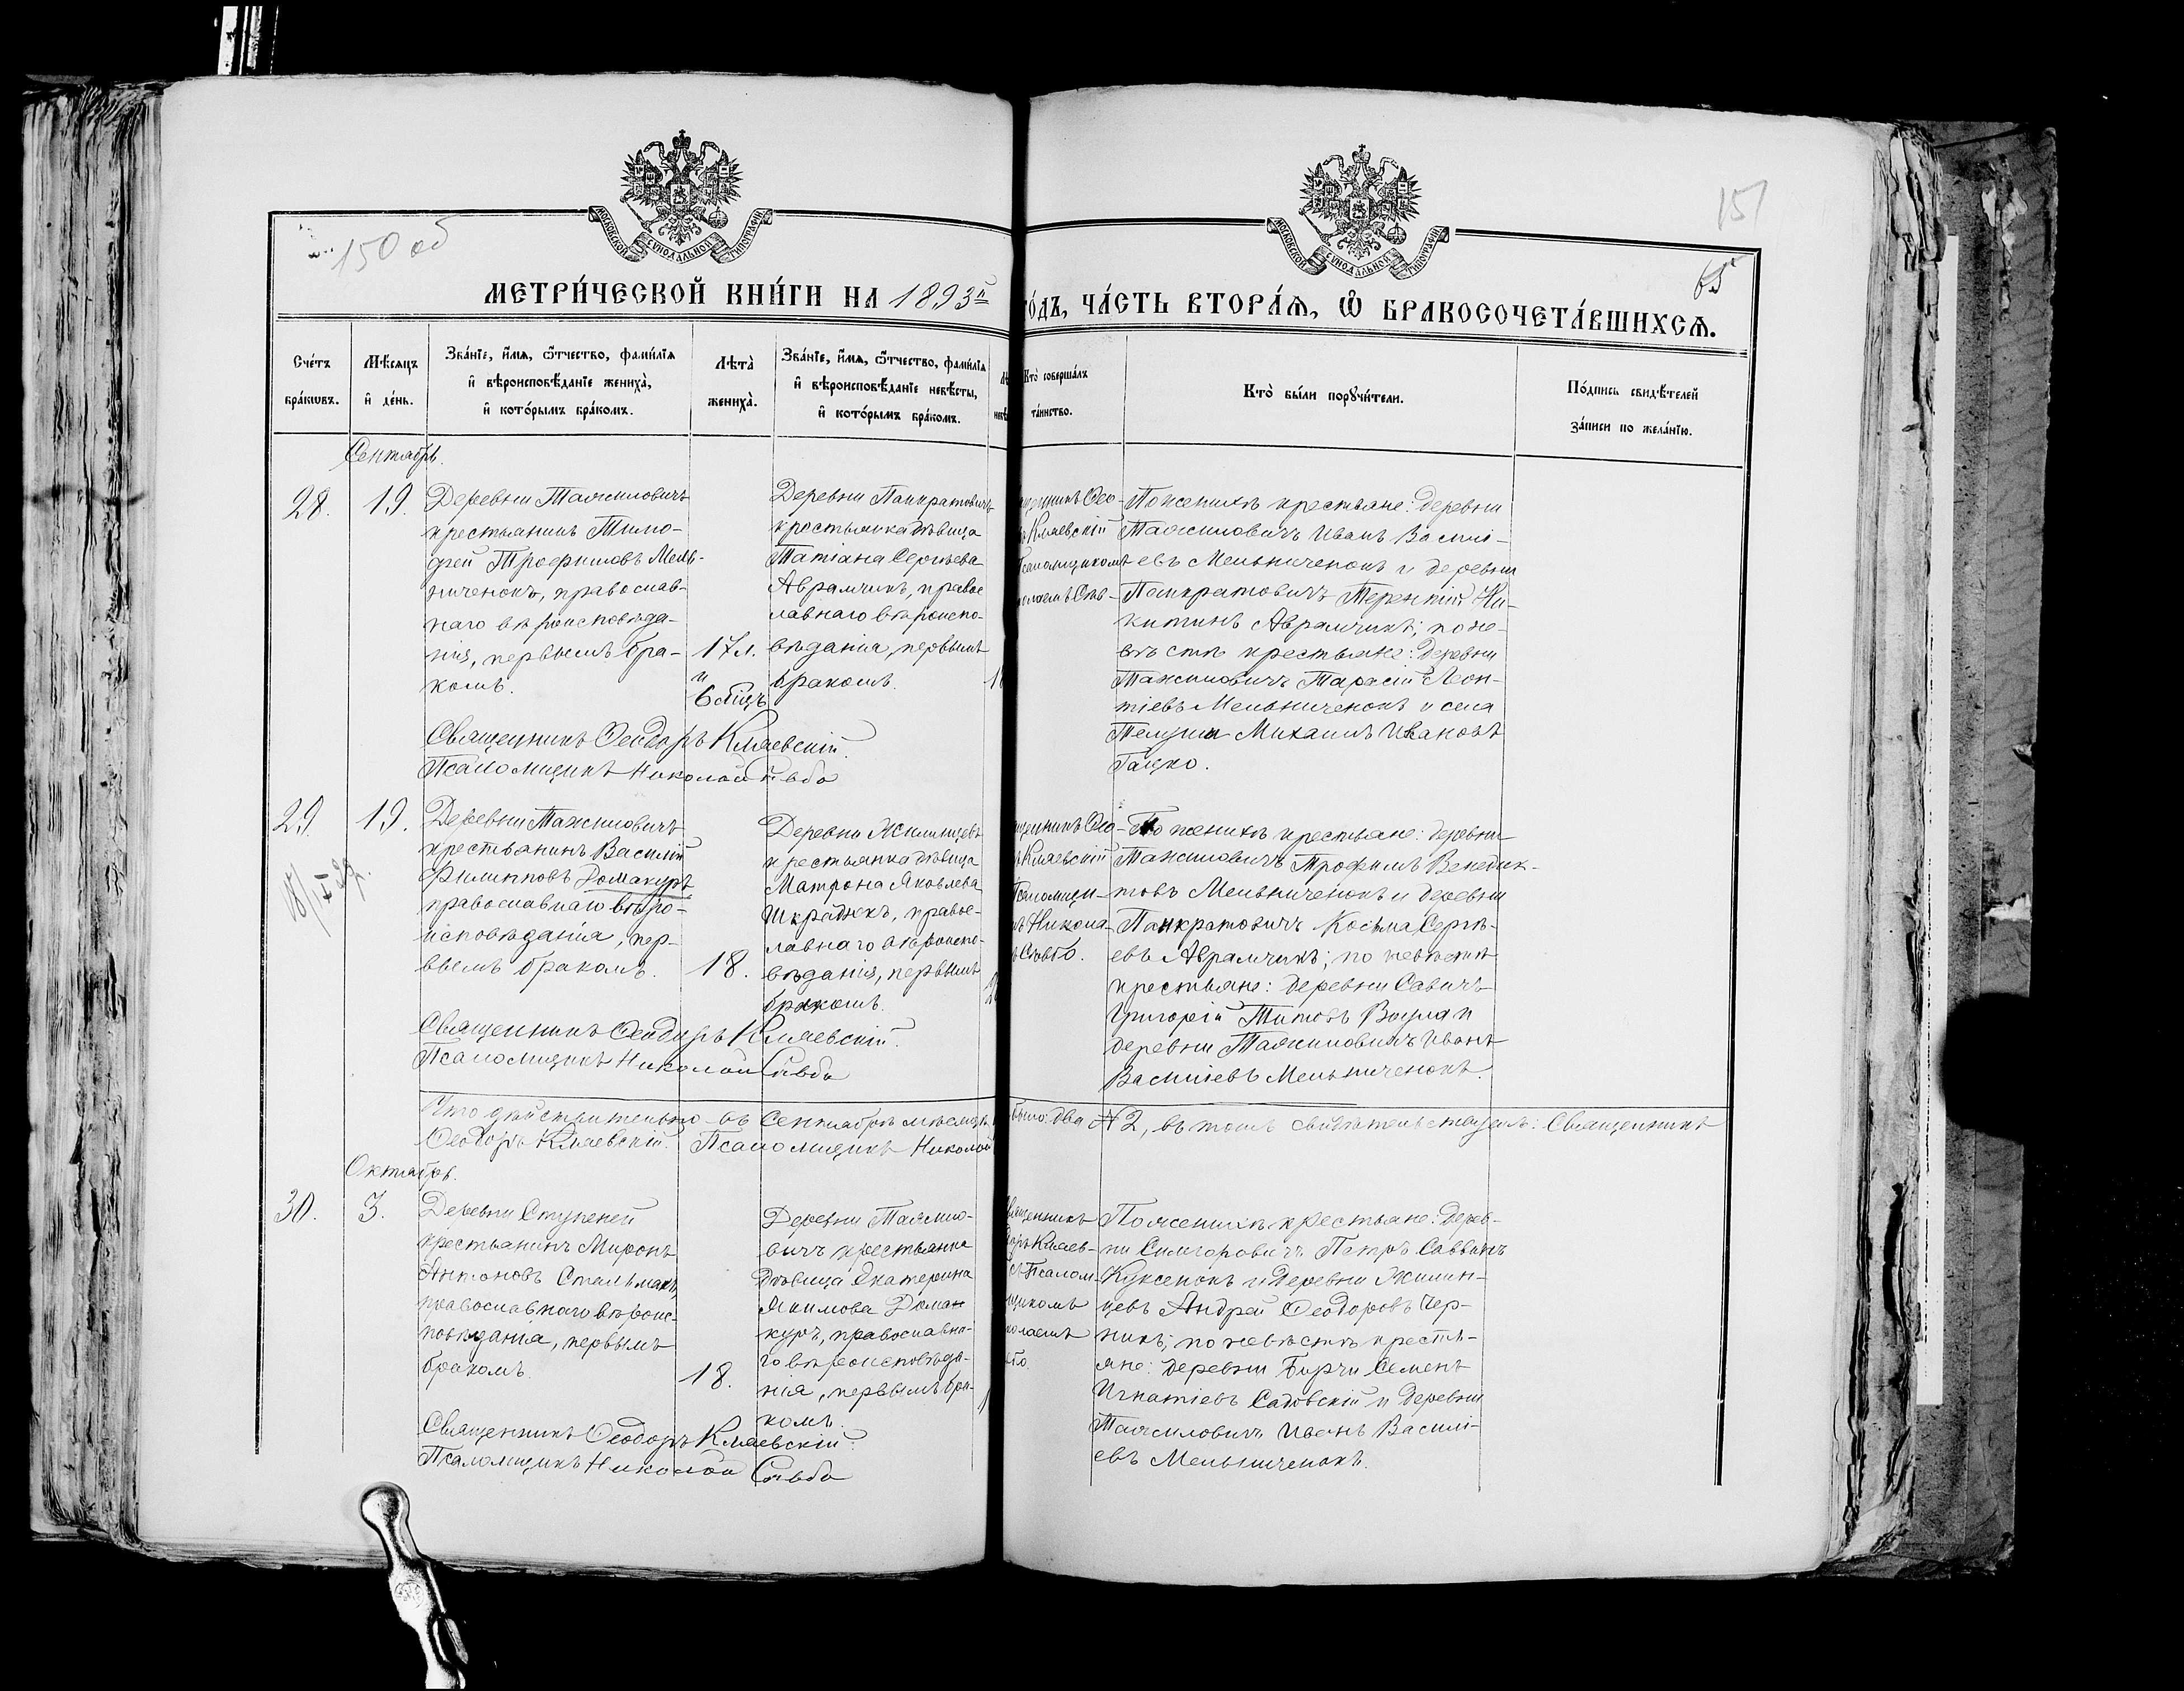 150 об
151
65
МОСКОВСКОЙ СѴНОДАЛЬНОЙ ТИПОГРАФІИ
МОСКОВСКОЙ СѴНОДАЛЬНОЙ ТИПОГРАФІИ
МЕТРИ́ЧЕСКОЙ КНИ́ГИ НА 1893й
ГО́ДЪ, ЧА́СТЬ ВТОРА́Ѧ, Ѽ БРАКОСОЧЕТА́ВШИХСѦ.
Сче́тъ
бра́кѡвъ.
Мѣ́сяцъ
и҆ де́нь.
Зва́нїе, и҆́мѧ, ѻ҆́тчество, фамѝлїѧ
и҆ вѣроисповѣ́данїе жениха̀,
и҆ кото́рымъ бра́комъ.
Лѣта̀
жениха̀.
Зва́нїе, и҆́мѧ, ѻ҆́тчество, фамѝлїѧ
и҆ вѣроисповѣ́данїе невѣ́сты,
и҆ кото́рымъ бра́комъ.
Кто̀ соверша́лъ
та́инство.
Кто̀ бы́ли порꙋчи́тели.
По́дпись свидѣ́телей
за́писи по жела́нїю.
Сентябрь.
28.
19.
Деревни Тажиловичъ
крестьянинъ Тимо-
фей Трофимовъ Мель-
ниченокъ, православ-
наго вѣроисповѣда-
нія, первымъ бра-
комъ.
17 л.
и
6 мѣсц.
Деревни Панкратовичъ
крестьянка дѣвица
Татіана Сергѣева
Аврамчикъ, правос
лавнаго вѣроиспо-
вѣданія, первымъ
бракомъ.
Ѳео-
Кляевскій
Псаломщикомъ
Поженихѣ крестьяне: деревни
Тажиловичъ Иванъ Василі-
евъ Мельниченокъ и деревни
Панкратовичъ Терентій Ни-
китинъ Аврамчикъ; по не-
вѣстѣ крестьяне: деревни
Тажиловичъ Тарасій Леон-
тіевъ Мельниченокъ и села
Телуши Михаилъ Ивановъ
Гацко.
Священникъ Ѳеодоръ Кляевскій.
Псаломщикъ Николай Сѣвбо
29.
19.
Деревни Тажиловичъ
крестьянинъ Василій
Филипповъ Домакуръ
православнаго вѣро-
исповѣданія, пер-
вымъ бракомъ.
18.
Деревни Жилинцевъ
крестьянка дѣвица
Матрона Яковлева
Шкрадюкъ, правос-
лавнаго вѣроиспо-
вѣданія, первымъ
бракомъ.
Ѳео-
Кляевскій
Псаломщи-
Никола-
Сѣвбо.
По женихѣ крестьяне: деревни
Тажиловичъ Трофимъ Венедик-
товъ Мельниченокъ и деревни
Панкратовичъ Косьма Сергѣ-
евъ Аврамчикъ; по невѣстѣ
крестьяне: деревни Савичъ
Григорій Титовъ и
деревни Тажиловичъ Иванъ
Василіевъ Мельниченокъ.
Священникъ Ѳеодоръ Кляевскій.
Псаломщикъ Николай Сѣвбо
Что дѣйствительно въ Сентябрѣ мѣсяцѣ было: два № 2, въ томъ свидѣтельствуемъ: Священникъ
Ѳеодоръ Кляевскій. Псаломщикъ Николай
Октябрь.
30.
3.
Деревни Ступеней
крестьянинъ Миронъ
Антоновъ Стальмакъ,
православнаго вѣроис-
повѣданія, первымъ
бракомъ.
18.
Деревни Тажило-
вичъ крестьянка
дѣвица Екатерина
Якимова Домаш
куръ, православна-
го вѣроисповѣда-
нія, первымъ бра-
комъ.
Священникъ
Кляев-
Псалом-
щикомъ
Поженихѣ крестьяне: Дерев-
ни Симгоровичъ Петръ Саввинъ
Куксенокъ и деревни Жилин-
цевъ Андрей Ѳеодоровъ Чер-
никъ; по невѣстѣ кресть-
яне: деревни Бирчи Семенъ
Игнатіевъ Садовскій и деревни
Тажиловичъ Иванъ Василі-
евъ Мельниченокъ.
Священникъ Ѳеодоръ Кляевскій.
Псаломщикъ Николай Сѣвбо